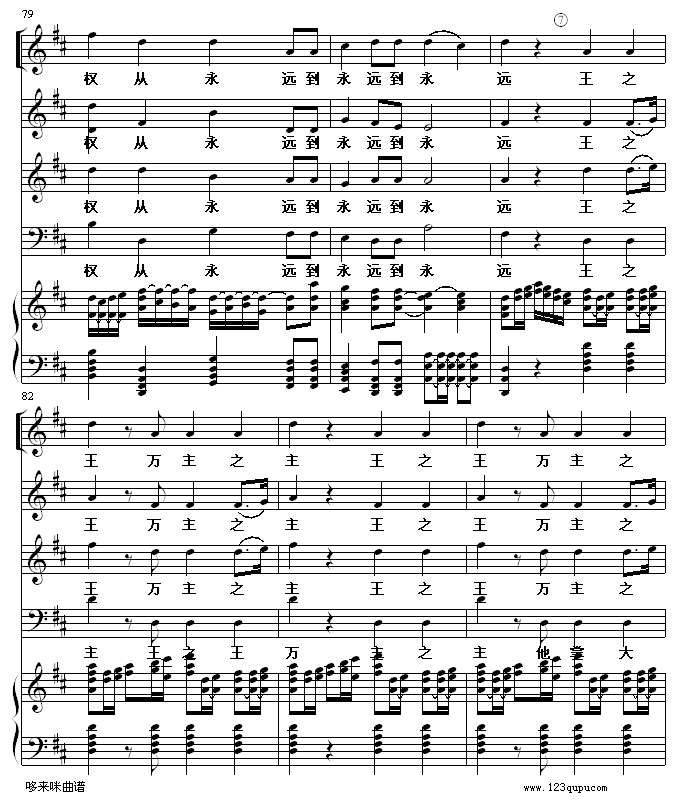 79
7
权 从 永 远 到 永 远 到 永 远 王 之
权 从 永 远 到 永 远 到 永 远 王 之
权 从 永 远 到 永 远 到 永 远 王 之
权 从 永 远 到 永 远 到 永 远 王 之
82
王 万 主 之 主 王 之 王 万 主 之
王 万 主 之 主 王 之 王 万 主 之
王 万 主 之 主 王 之 王 万 主 之
主 王 之 王 万 主 之 主 他 掌 大
哆来咪曲谱 www.123qupu.com